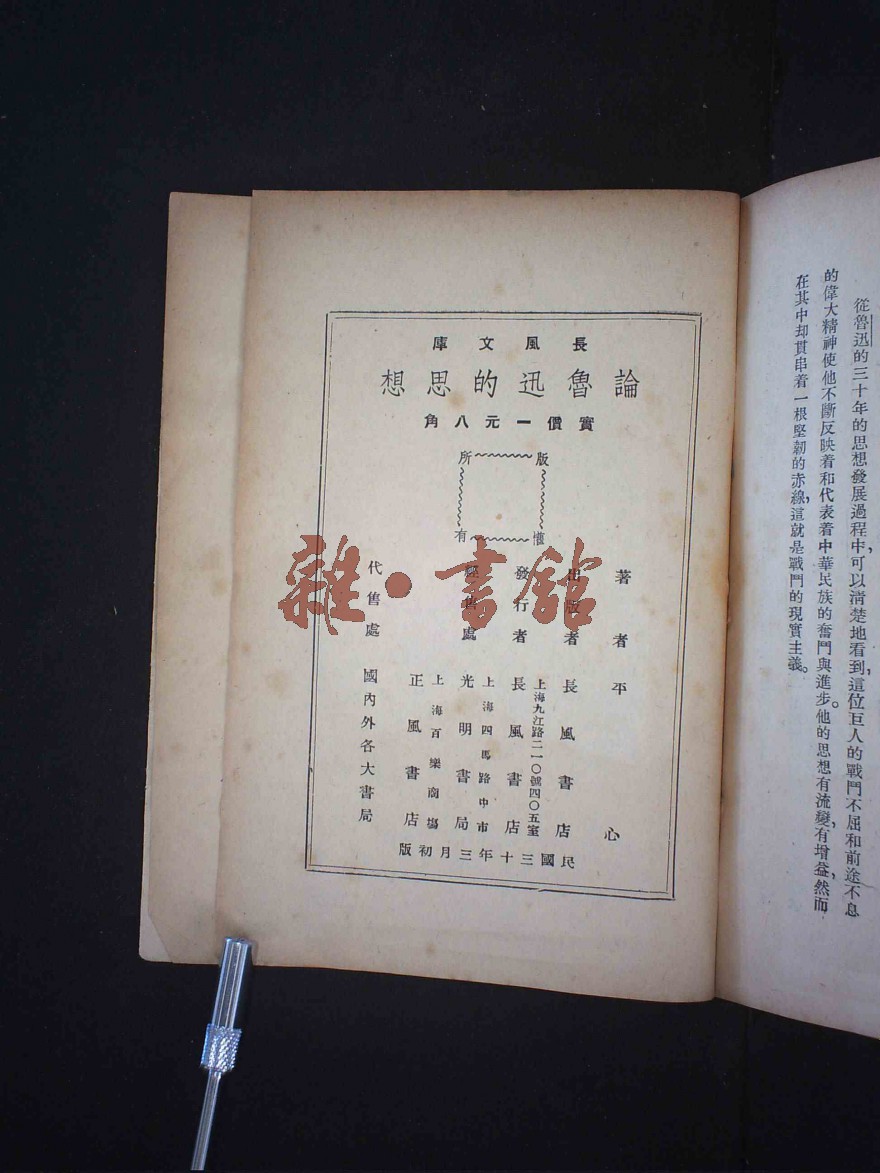 從魯迅的三十年的思想發展過程中，可以清楚地看到，這位巨人的戰鬥不屈和前途不息
的偉大精神使他不斷反映着和代表着中華民族的奮鬥與進步。他的思想有流變，有增益，然而
在其中却貫串着一根堅韌的赤線，這就是戰鬥的現實主義。
長風文庫
論魯迅的思想
實價一元八角
版權所有
著者 平心
出版者 長風書店
上海九江路二一〇號四〇五室
發行者 長風書店
上海四馬路中市
售處 光明書局
上海百樂商場
正風書店
代售處 國內外各大書局
民國三十年三月初版
雜·書館